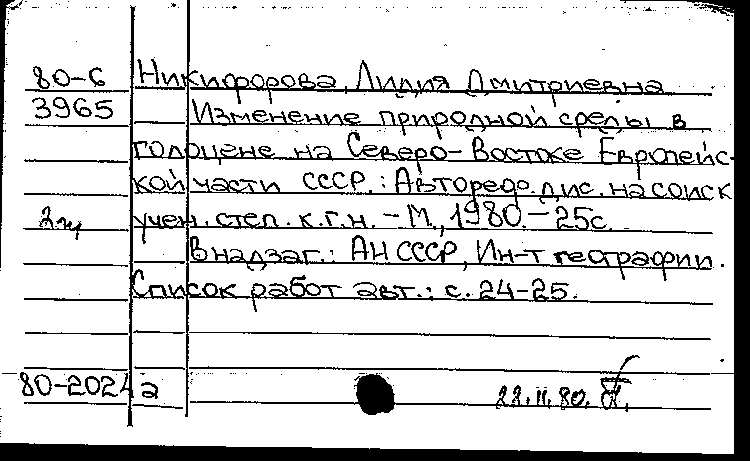 80-6 Никифорова, Лидия Дмитриевна
3965 Изменение природной среды в
голоцене на Северо-Востоке Европейс-
кой части СССР.: Автореф. дис. на соиск
учен. степ. к.г.н. - М., 1980. - 25с.
В надзаг.: АН СССР, Ин-т географии.
Список работ авт.: с. 24-25.
80-2024а
22.11.80.